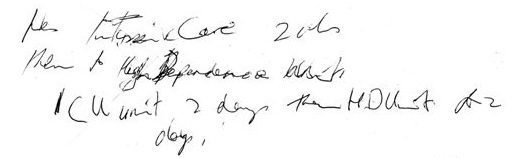 Intensive Care 2
then to High Dependence Unit
ICU unit 2 days then HD Unit 2
days.